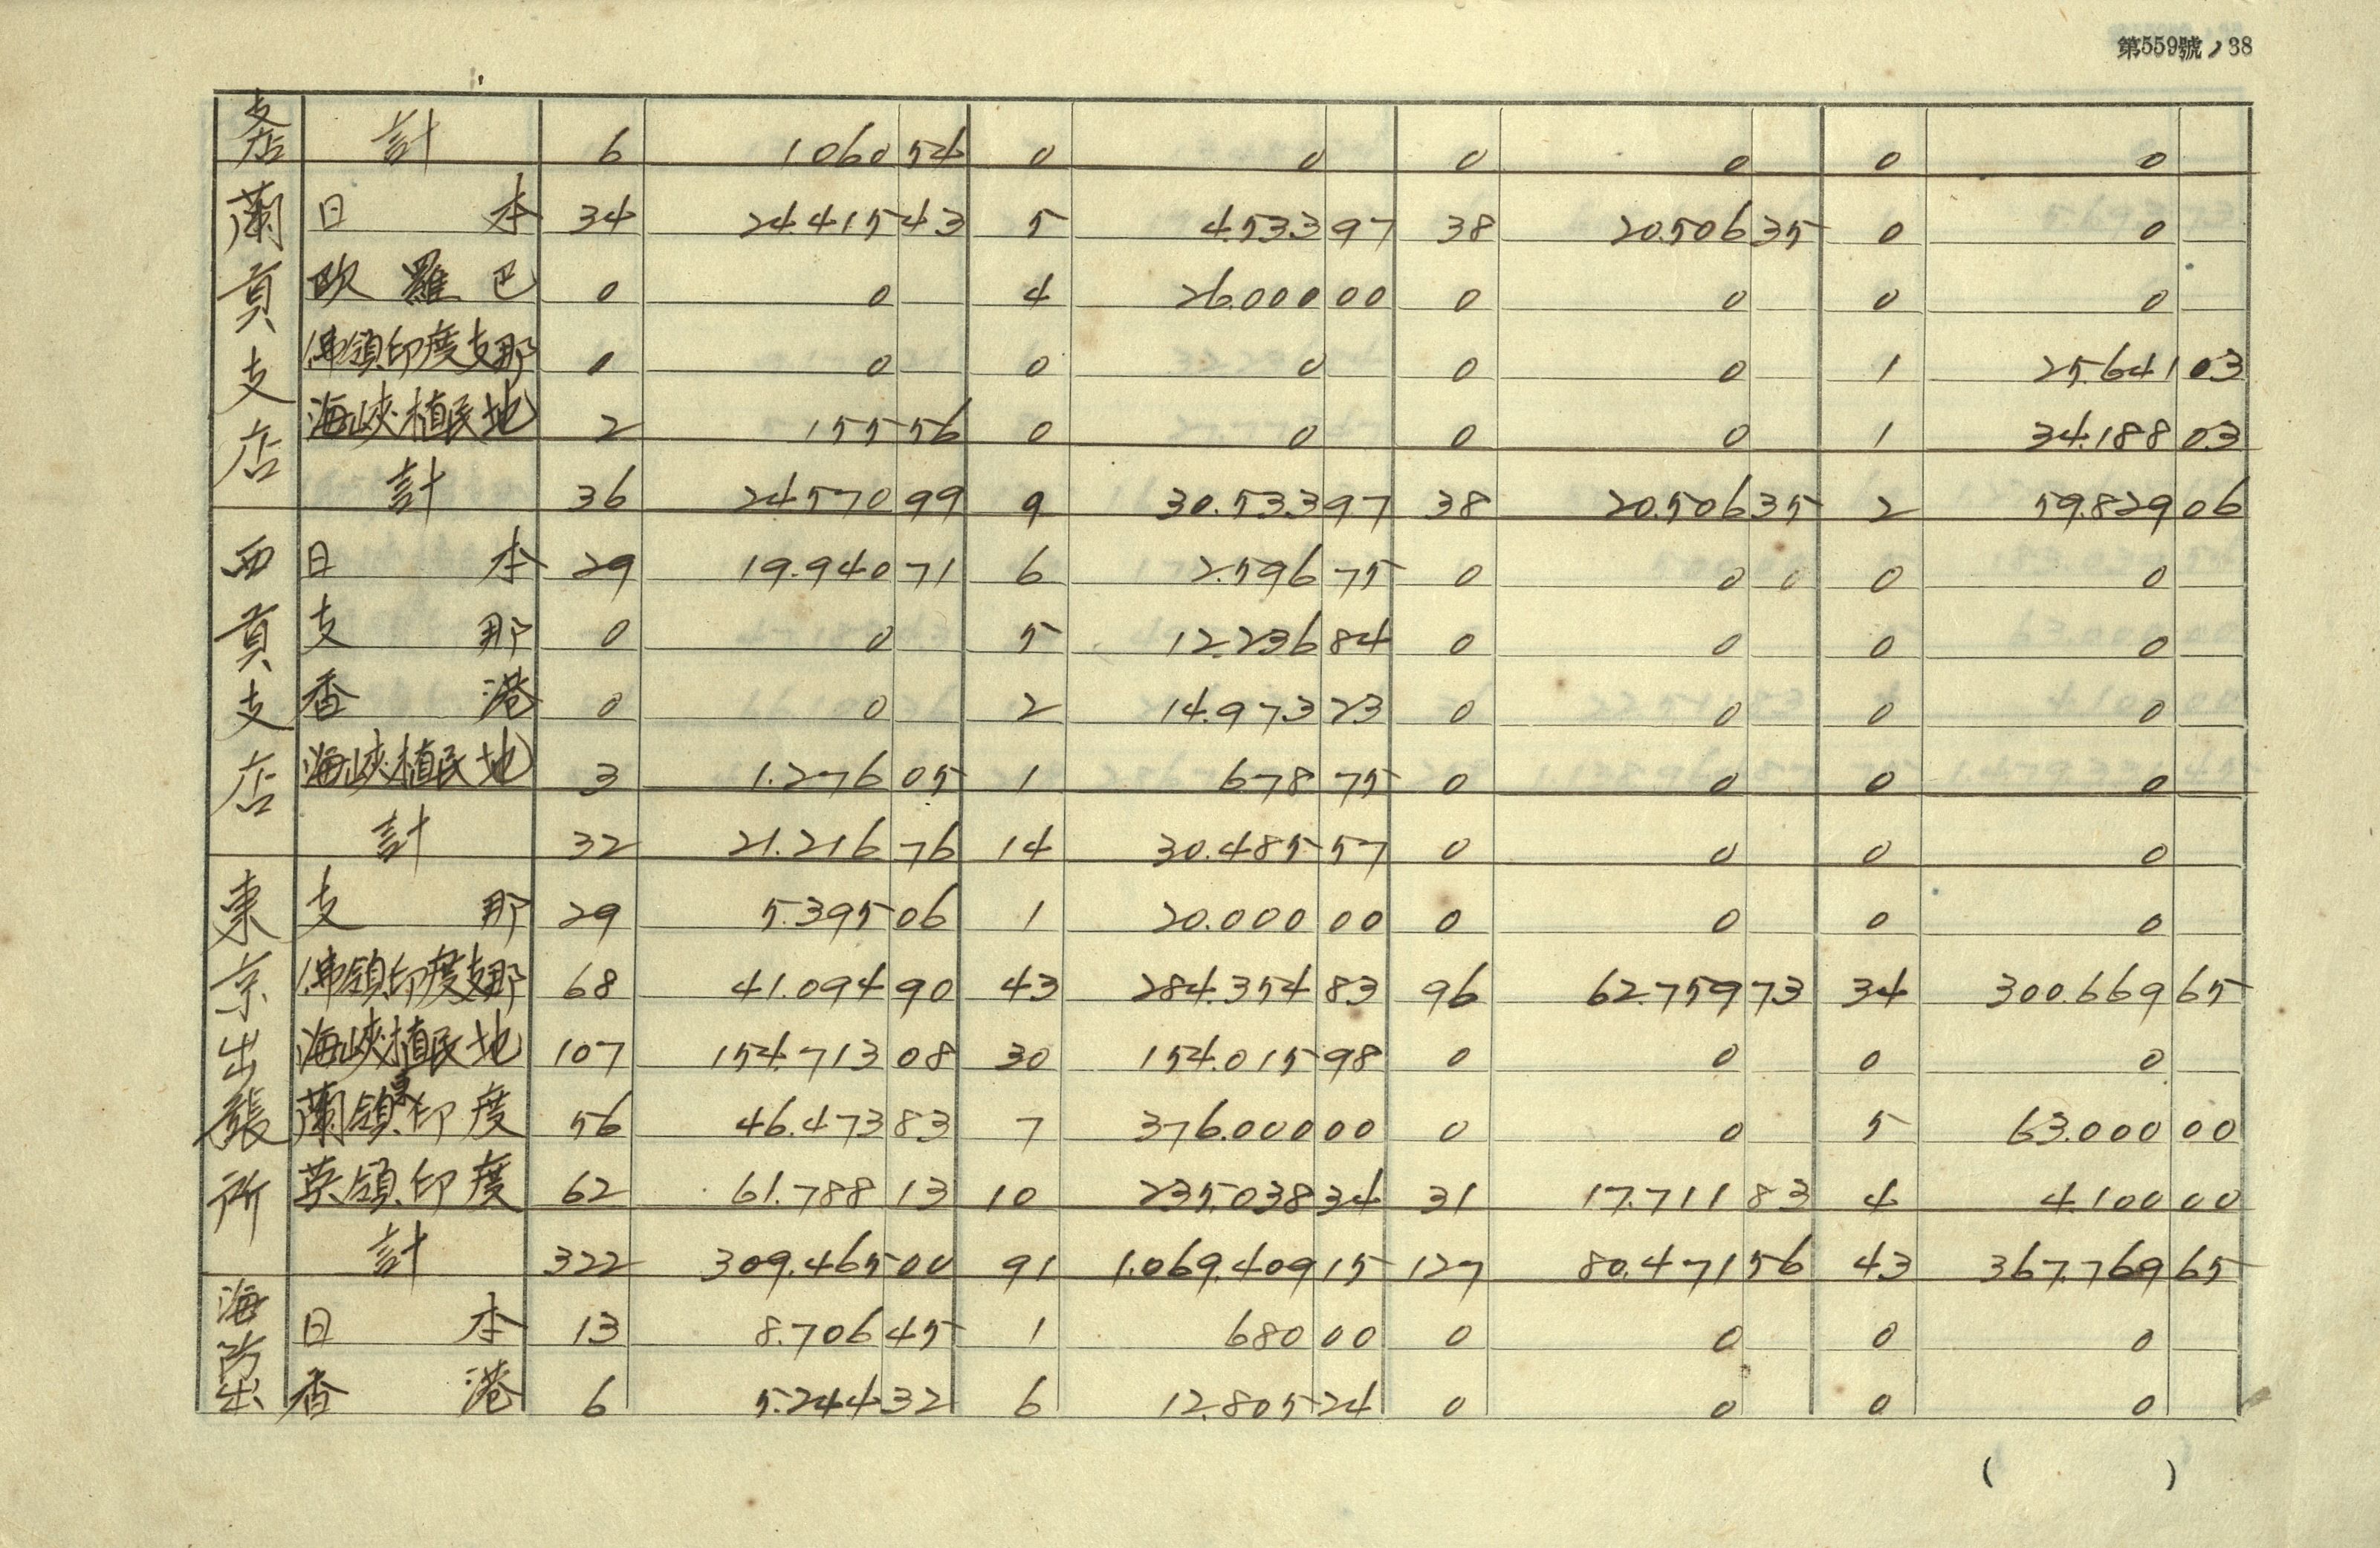 第559號ノ38
支店 計 6 1060 54 0 0 0 0 0 0
蘭貢支店 日本 34 24.415 43 5 4.533 97 38 20.506 35 0 0
欧羅巴 0 0 4 26.000 00 0 0 0 0
佛領印度支那 0 0 0 0 0 0 1 25.641 03
海峽植民地 2 155 56 0 0 0 0 1 34.188 03
計 36 24570 99 9 30.533 97 38 20.506 35 2 59.829 06
西貢支店 日本 29 19.940 71 6 2.596 75 0 0 0 0 0
支那 0 0 5 12.236 84 0 0 0 0
香港 0 0 2 14.973 23 0 0 0 0
海峽植民地 3 1.276 05 1 678 75 0 0 0 0
計 32 21.216 76 14 30.485 57 0 0 0 0
東京出張所 支那 29 5.395 06 1 20.000 00 0 0 0 0
佛領印度支那 68 41.094 90 43 284.354 83 96 62.759 73 34 300.669 65
海峽植民地 107 154.713 08 30 154.015 98 0 0 0 0
蘭領東印度 56 46.473 83 7 376.000 00 0 0 5 63.000 00
英領印度 62 61.788 13 10 235.038 34 31 17.711 83 4 4.100 00
計 322 309.465 00 91 1.069.409 15 127 80.471 56 43 367.769 65
海防出 日本 13 8.706 45 1 680 00 0 0 0 0
香港 6 5.244 32 6 12.805 24 0 0 0 0
( )